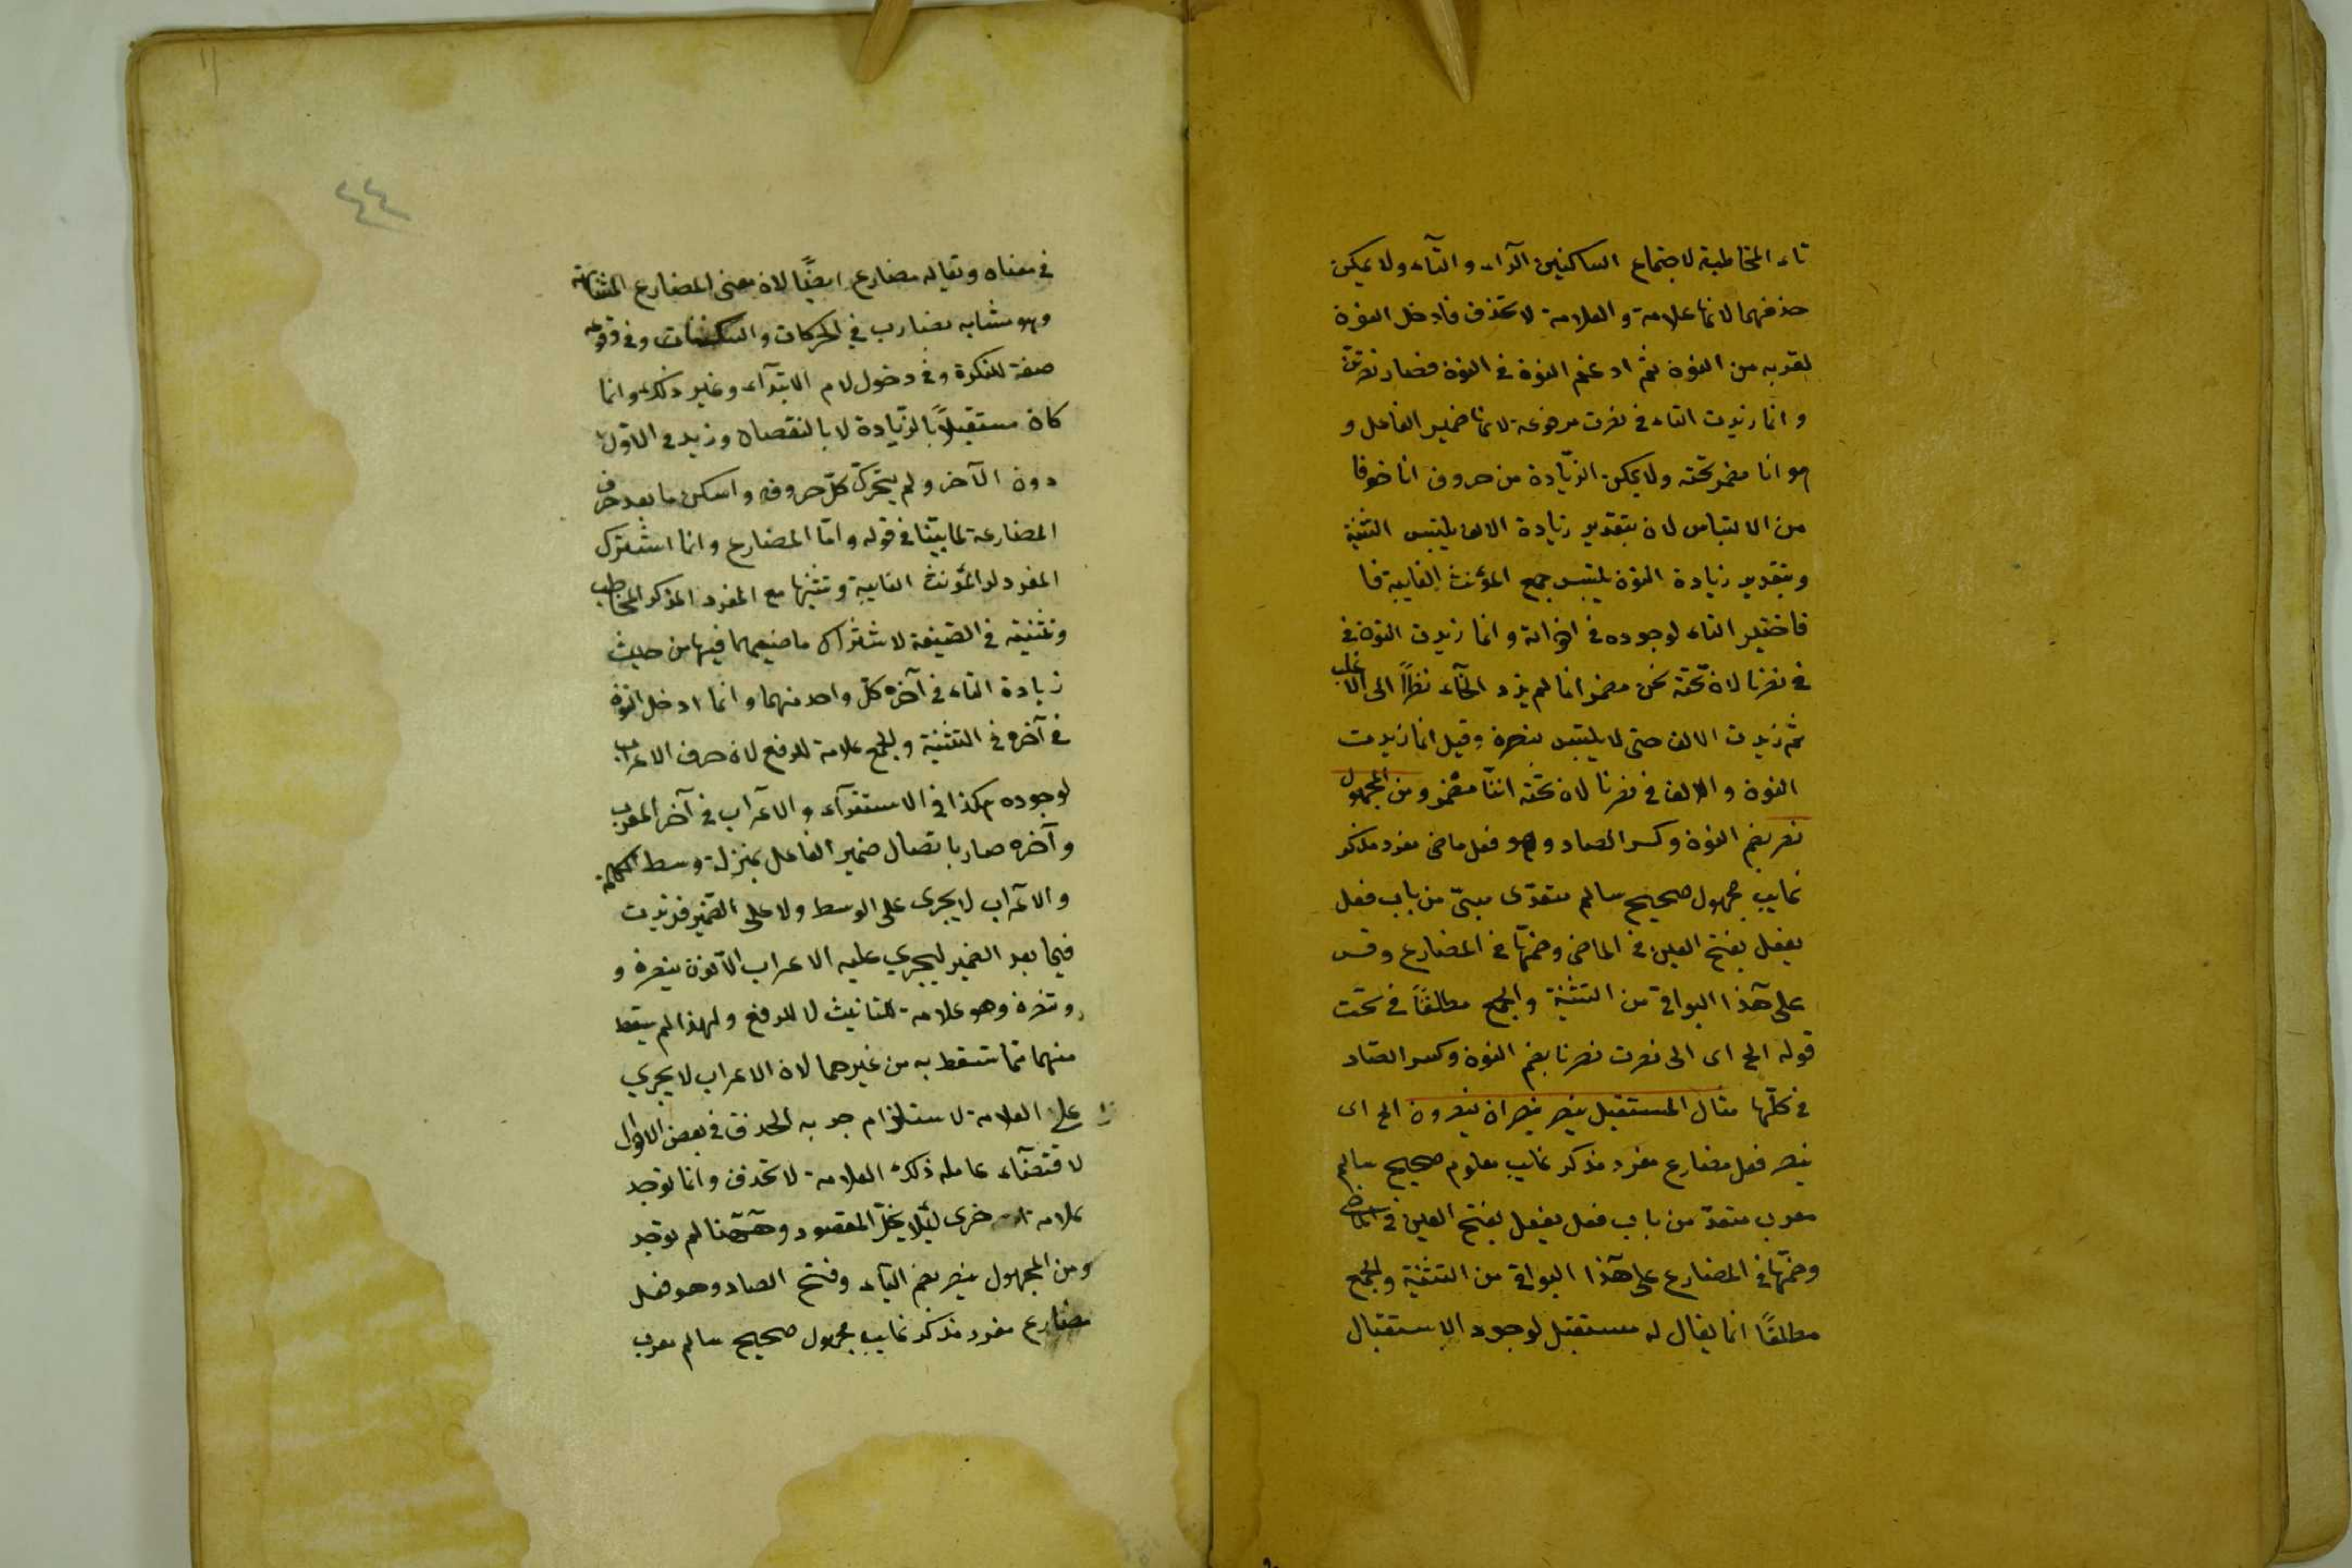 تاء المخاطبة لاجتماع الساكنين الرآء والتآء ولا يمكن
حذفهما لانها علامة والعلامة لا تحذف فادخل النون
لقربه من النون ثم ادغم النون في النون فصار نصرتنّ
وانما زيدت التاء في نصرت مرفوعة لانها ضمير الفاعل و
هو انا مضمر تحته ولا يمكن الزّيادة من حروف انا خوفا
من الالتباس لان بتقدير زيادة الالف يلتبس التثنية
وبتقدير زيادة النون يلتبس جمع المؤنث الغايبة فا
فاختير التاء لوجوده في اخواته وانما زيدت النون في
في نصرنا لان تحته نحن مضمر انما لم يزد الحآء نظرًا الى الاغلب
ثم زيدت الالف حتى لا يلتبس بنصرن وقيل انما زيدت
النون والالف في نصرنا لان تحته اننّا مضمر ومن المجهول
نصر بضم النون وكسر الصاد وهو فعل ماضى مفرد مذكر
غايب مجهول صحيح سالم متعدّى مبنىّ من باب فعل
يفعل بفتح العين في الماضى وضمّها في المضارع وقس
على هذا البواقى من التثنية والجمع مطلقًا في تحت
قوله الخ اى الى نصرت نصرنا بضم النون وكسر الصّاد
في كلّها مثال المستقبل ينصر ينصران ينصرون الخ اى
ينصر فعل مضارع مفرد مذكر غايب معلوم صحيح سالم
معرب متعدّ من باب فعل يفعل بفتح العين في الماضى
وضمّها في المضارع على هذا البواقى من التثنية والجمع
مطلقًا انما يقال له مستقبل لوجود الاستقبال
٤٤
في معناه ويقال له مضارع ايضًا لان معنى المضارع المشابهة
وهو مشابه بضارب في الحركات والسكنات وفي وقوعه
صفة للنكرة وفي دخول لام الابتدآء وغير ذلك وانما
كان مستقبلاً بالزّيادة لا بالنقصان وزيد في الاوّل
دون الآخر ولم يتحرّك كلّ حروفه واسكن ما بعد حرف
المضارعة لما بيّنا في قوله وامّا المضارع وانما اشترك
المفرد المؤنث الغايبة وتثنيتها مع المفرد المذكر المخاطب
وتثنيته في الصّيغة لاشتراك ماضيهما فيها من حيث
زيادة التاء في آخره كلّ واحد منهما وانما ادخل النون
في آخره في التثنية والجمع علامة للرفع لان حرف الاعراب
لوجوده هكذا في الاستقرآء والاعراب في آخر المعرب
وآخره صار باتصال ضمير الفاعل بمنزلة وسط الكلمة
والاعراب لا يجرى على الوسط ولا على الضّمير فزيدت
فيما بعد الضمير ليجري عليه الاعراب الّا نون ينصرن و
وتنصرن وهو علامة للتانيث لا للرفع ولهذا لم يسقط
منهما بما تسقط به من غيرهما لان الاعراب لا يجري
على العلامة لاستلزام به الحذف في بعض الاحوال
لاقتضآء عامله ذلك العلامة لا تحذف وانما توجد
علامة اخرى ليّلا يخلّ المقصود وههنا لم توجد
ومن المجهول ينصر بضم اليآء وفتح الصاد وهو فعل
مضارع مفرد مذكر غايب مجهول صحيح سالم معرب